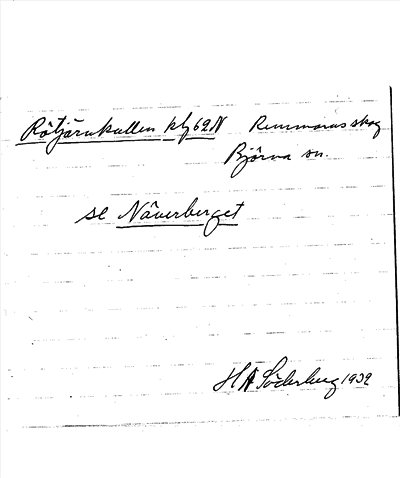 Rötjärnkullen kfz 62 N Remmarns skog
Björna sn.
se Näverberget
H A Söderberg 1932